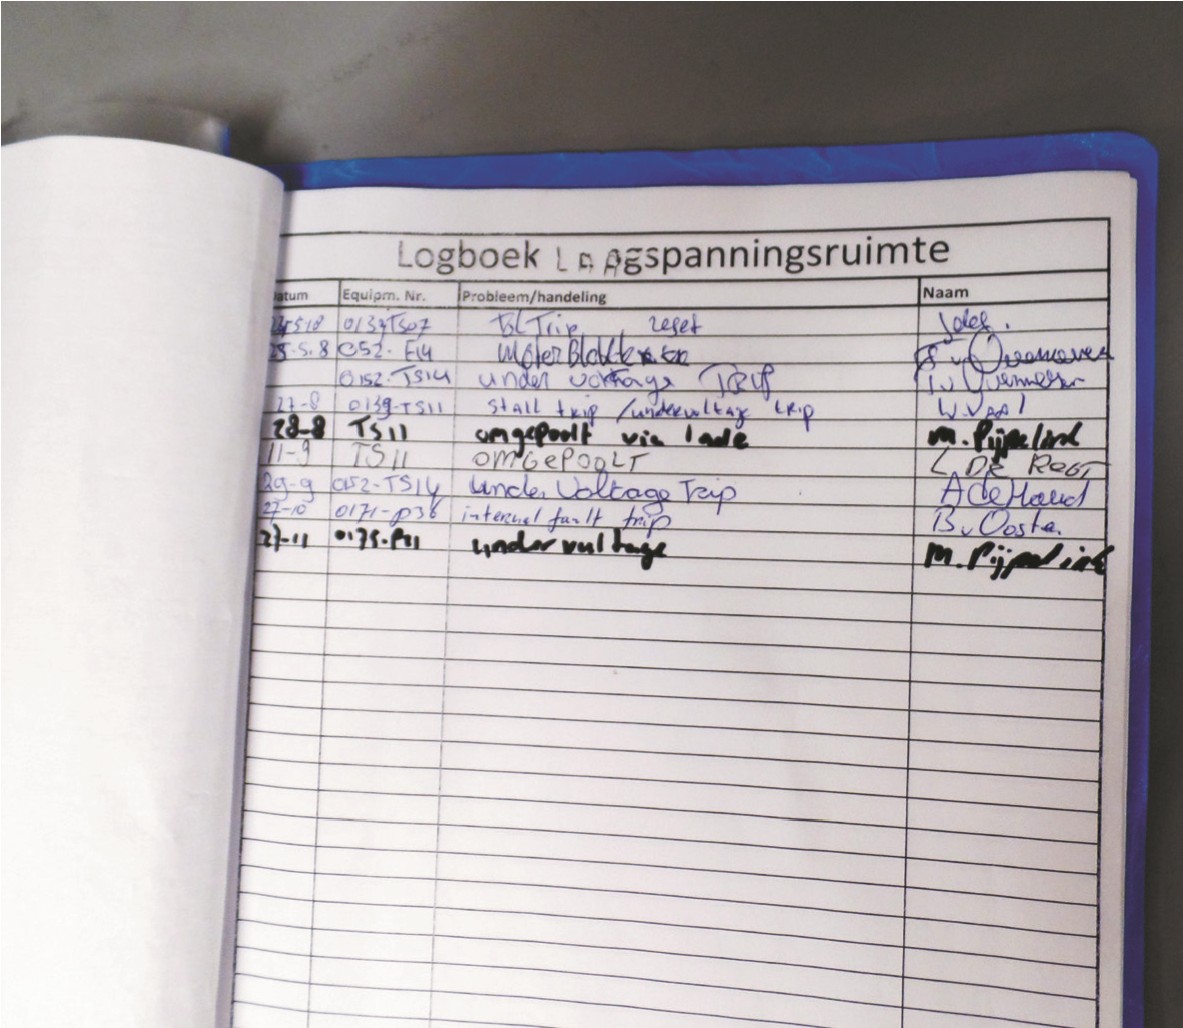 Logboek Laagspanningsruimte
atum Equipm. Nr. Probleem/handeling Naam
Trip reset
25-5-8 Motor
0152-TS14 under voltage
27-8 0139-TS11 stall trip / undervoltag trip W. Vaal
28-8 TS11 omgepoolt via lade M. Pijpelink
11-9 TS11 OMGEPOOLT L DE REGT
29-9 0152-TS14 Under Voltage Trip A de Haud
27-10 0171-P36 internal fault trip B. v Ooste.
27-11 0175-P21 under voltage M. Pijpelink